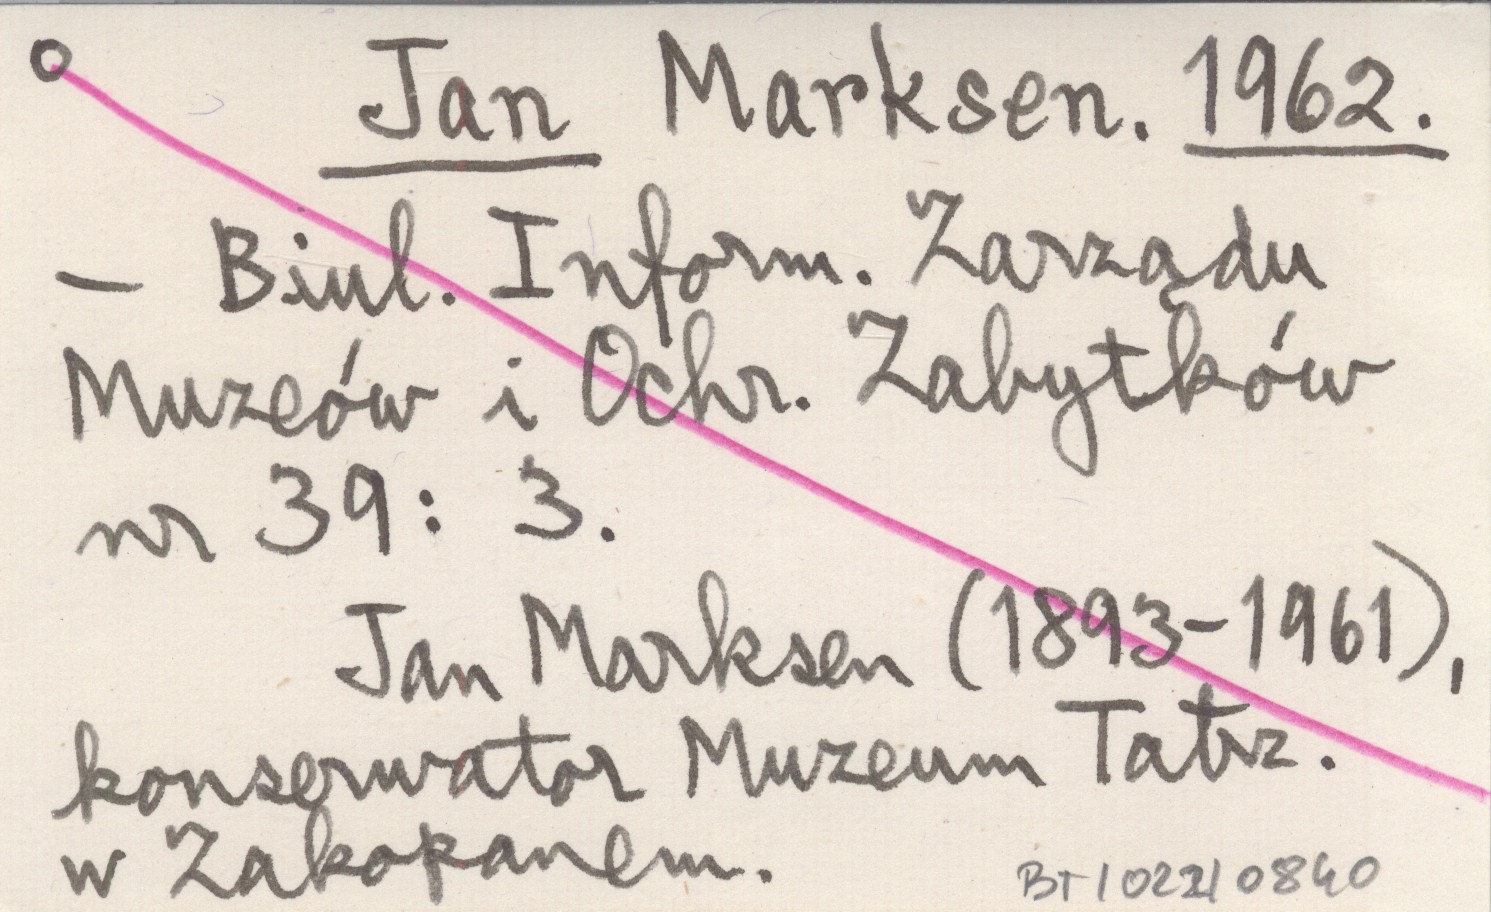 Jan Marksen. 1962.
– Biul. Inform. Zarządu
Muzeów i Ochr. Zabytków
nr 39: 3.
Jan Marksen (1893-1961),
konserwator Muzeum Tatrz.
w Zakopanem.
BT/022/0840